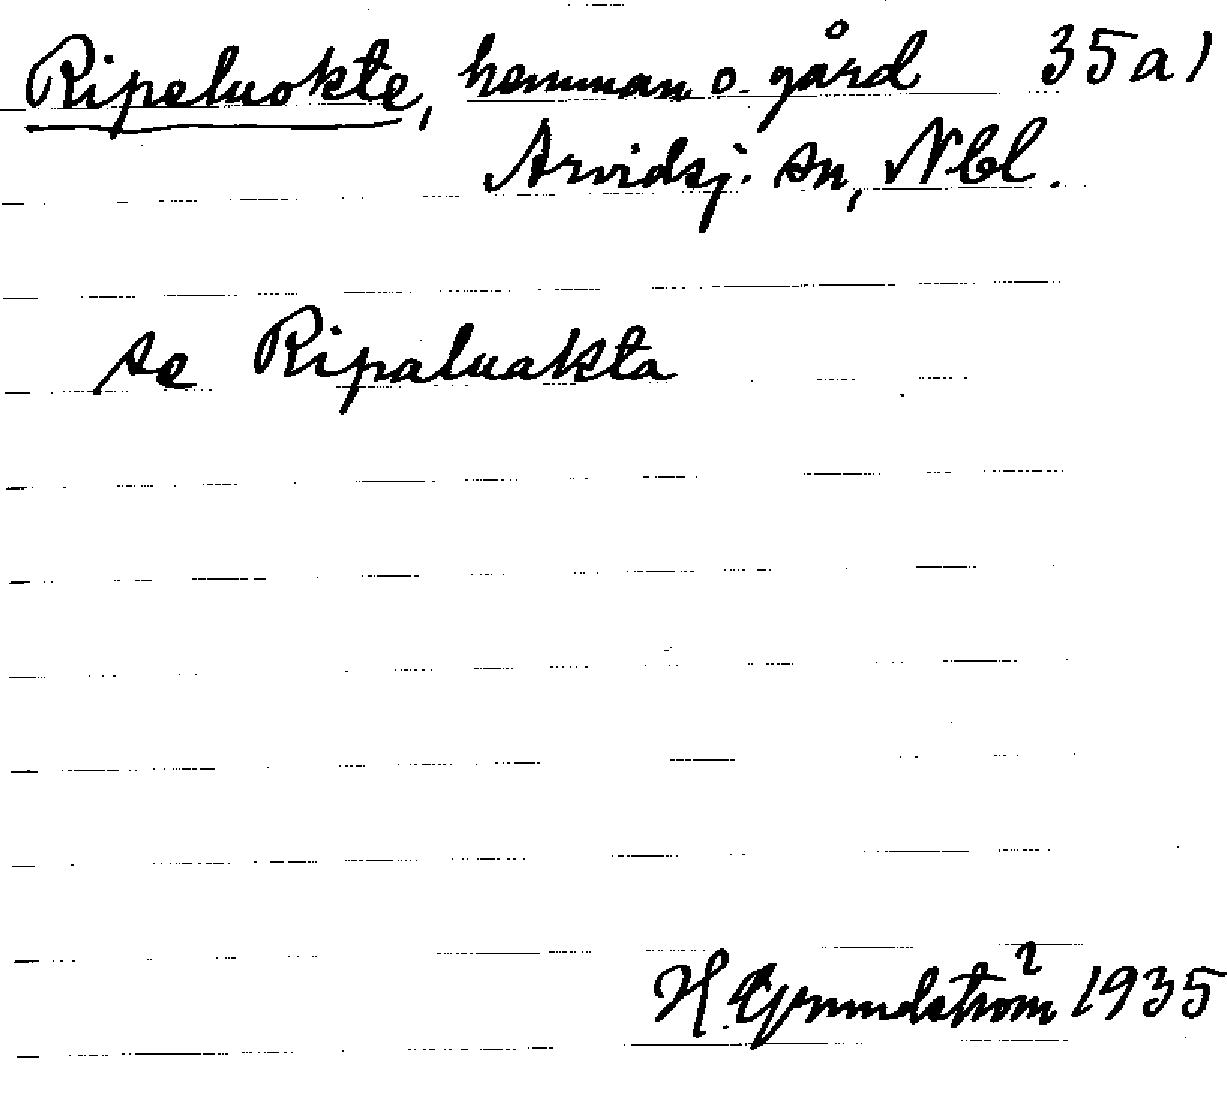 Ripeluokte, hemman o. gård 35a)
Arvidsj. sn, Nbl.
se Ripaluakta
H. Grundström 1935